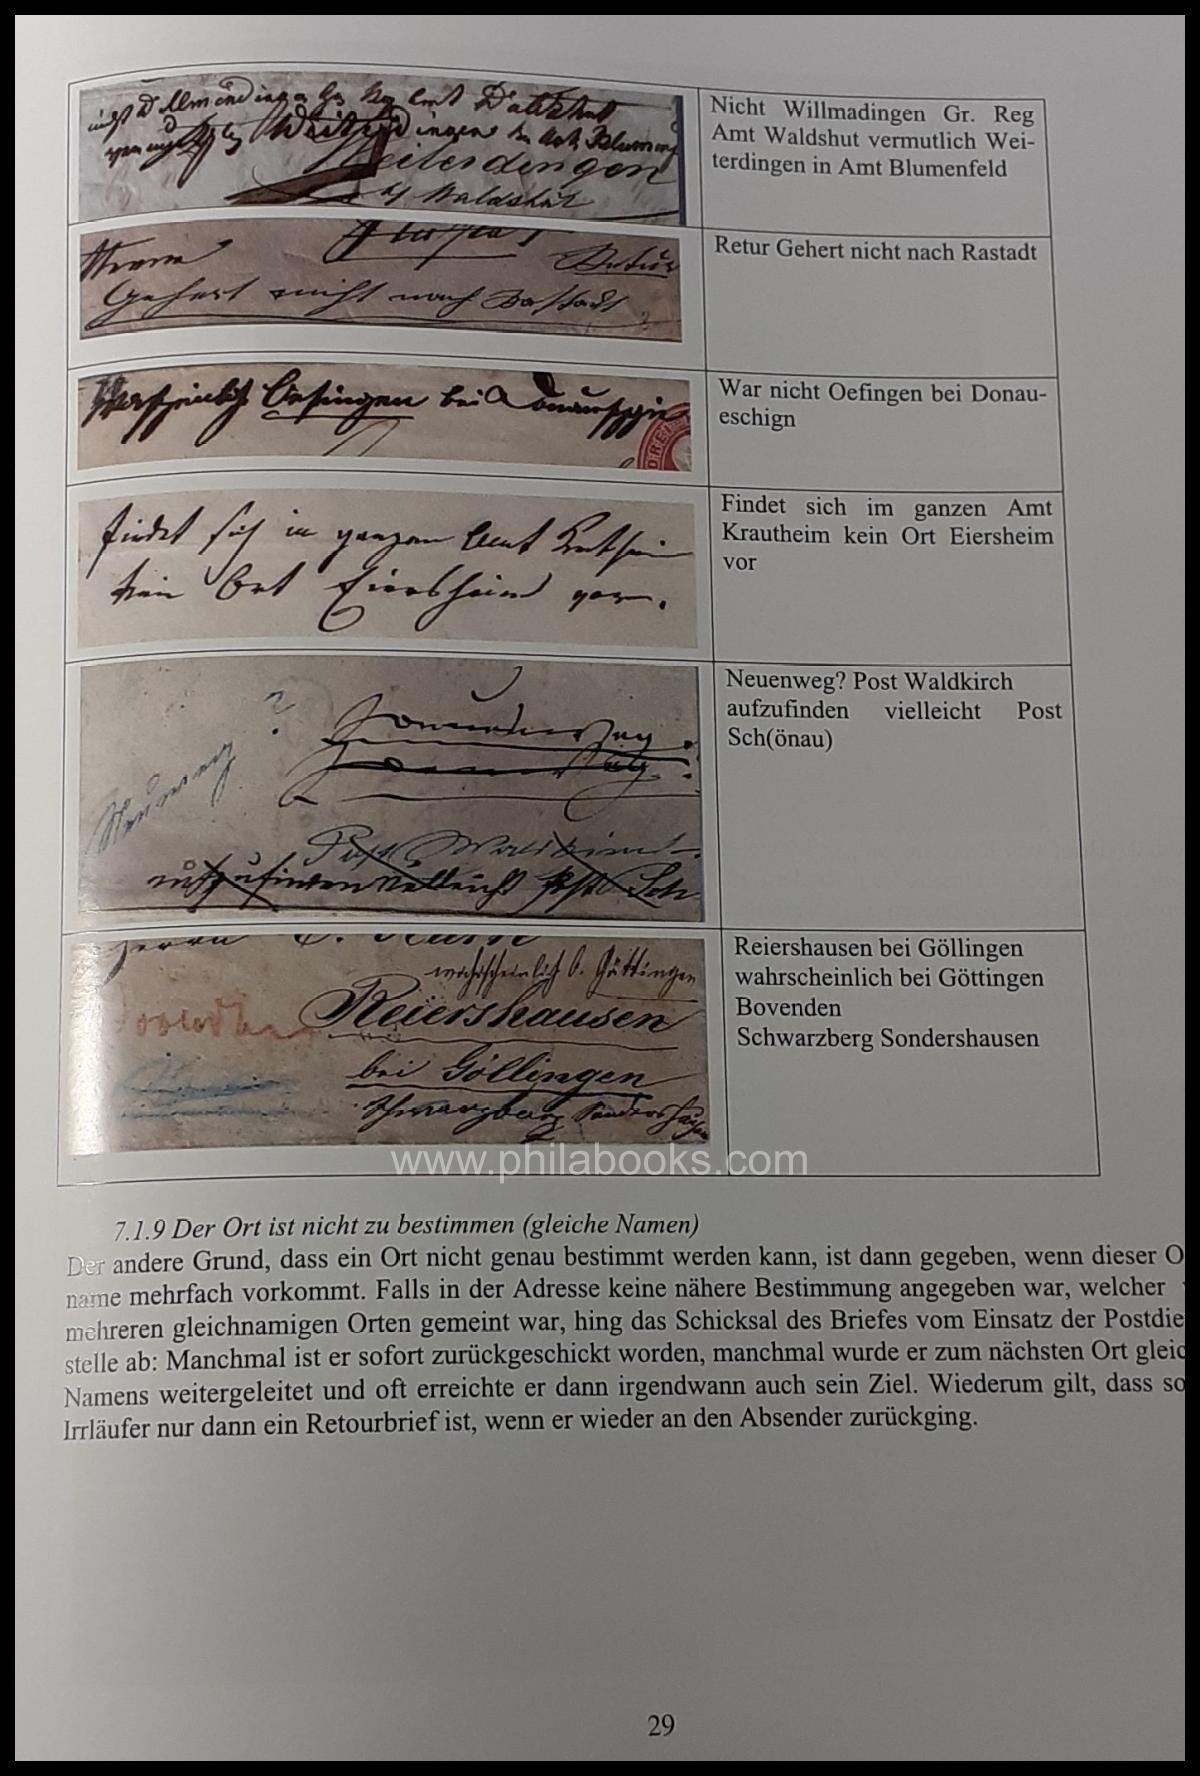 Nicht Willmadingen Gr. Reg
Amt Waldshut vermutlich Wei-
terdingen in Amt Blumenfeld
Weiterdingen
Waldshut
Retur Gehert nicht nach Rastadt
Herrn
Retur
Gehert nicht nach Rastadt
War nicht Oefingen bei Donau-
eschign
Wahrscheinlich Oefingen bei
DREI
Findet sich im ganzen Amt
Krautheim kein Ort Eiersheim
vor
findet sich in ganzen Amt
kein Ort Eiersheim vor.
Neuenweg? Post Waldkirch
aufzufinden vielleicht Post
Sch(önau)
?
Neuenweg
Post Waldkirch
aufzufinden vielleicht Post Sch
Reiershausen bei Göllingen
wahrscheinlich bei Göttingen
Bovenden
Schwarzberg Sondershausen
Herrn
wahrscheinlich b. Göttingen
Reiershausen
bei Göllingen
Schwarzburg Sondershausen
www.philabooks.com
7.1.9 Der Ort ist nicht zu bestimmen (gleiche Namen)
Der andere Grund, dass ein Ort nicht genau bestimmt werden kann, ist dann gegeben, wenn dieser O
name mehrfach vorkommt. Falls in der Adresse keine nähere Bestimmung angegeben war, welcher
mehreren gleichnamigen Orten gemeint war, hing das Schicksal des Briefes vom Einsatz der Postdie
stelle ab: Manchmal ist er sofort zurückgeschickt worden, manchmal wurde er zum nächsten Ort gleic
Namens weitergeleitet und oft erreichte er dann irgendwann auch sein Ziel. Wiederum gilt, dass so
Irrläufer nur dann ein Retourbrief ist, wenn er wieder an den Absender zurückging.
29